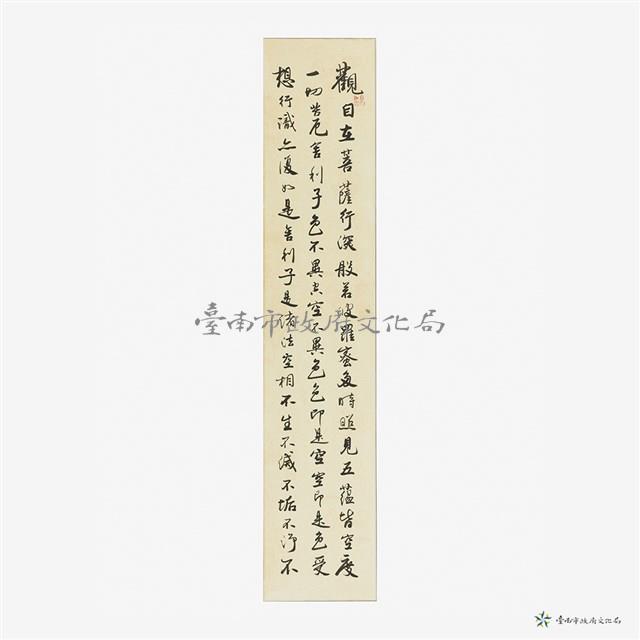 觀自在菩薩行深般若波羅蜜多時照見五蘊皆空度
一切苦厄舍利子色不異空空不異色色即是空空即是色受
想行識亦復如是舍利子是諸法空相不生不滅不垢不淨不
臺南市政府文化局
臺南市政府文化局